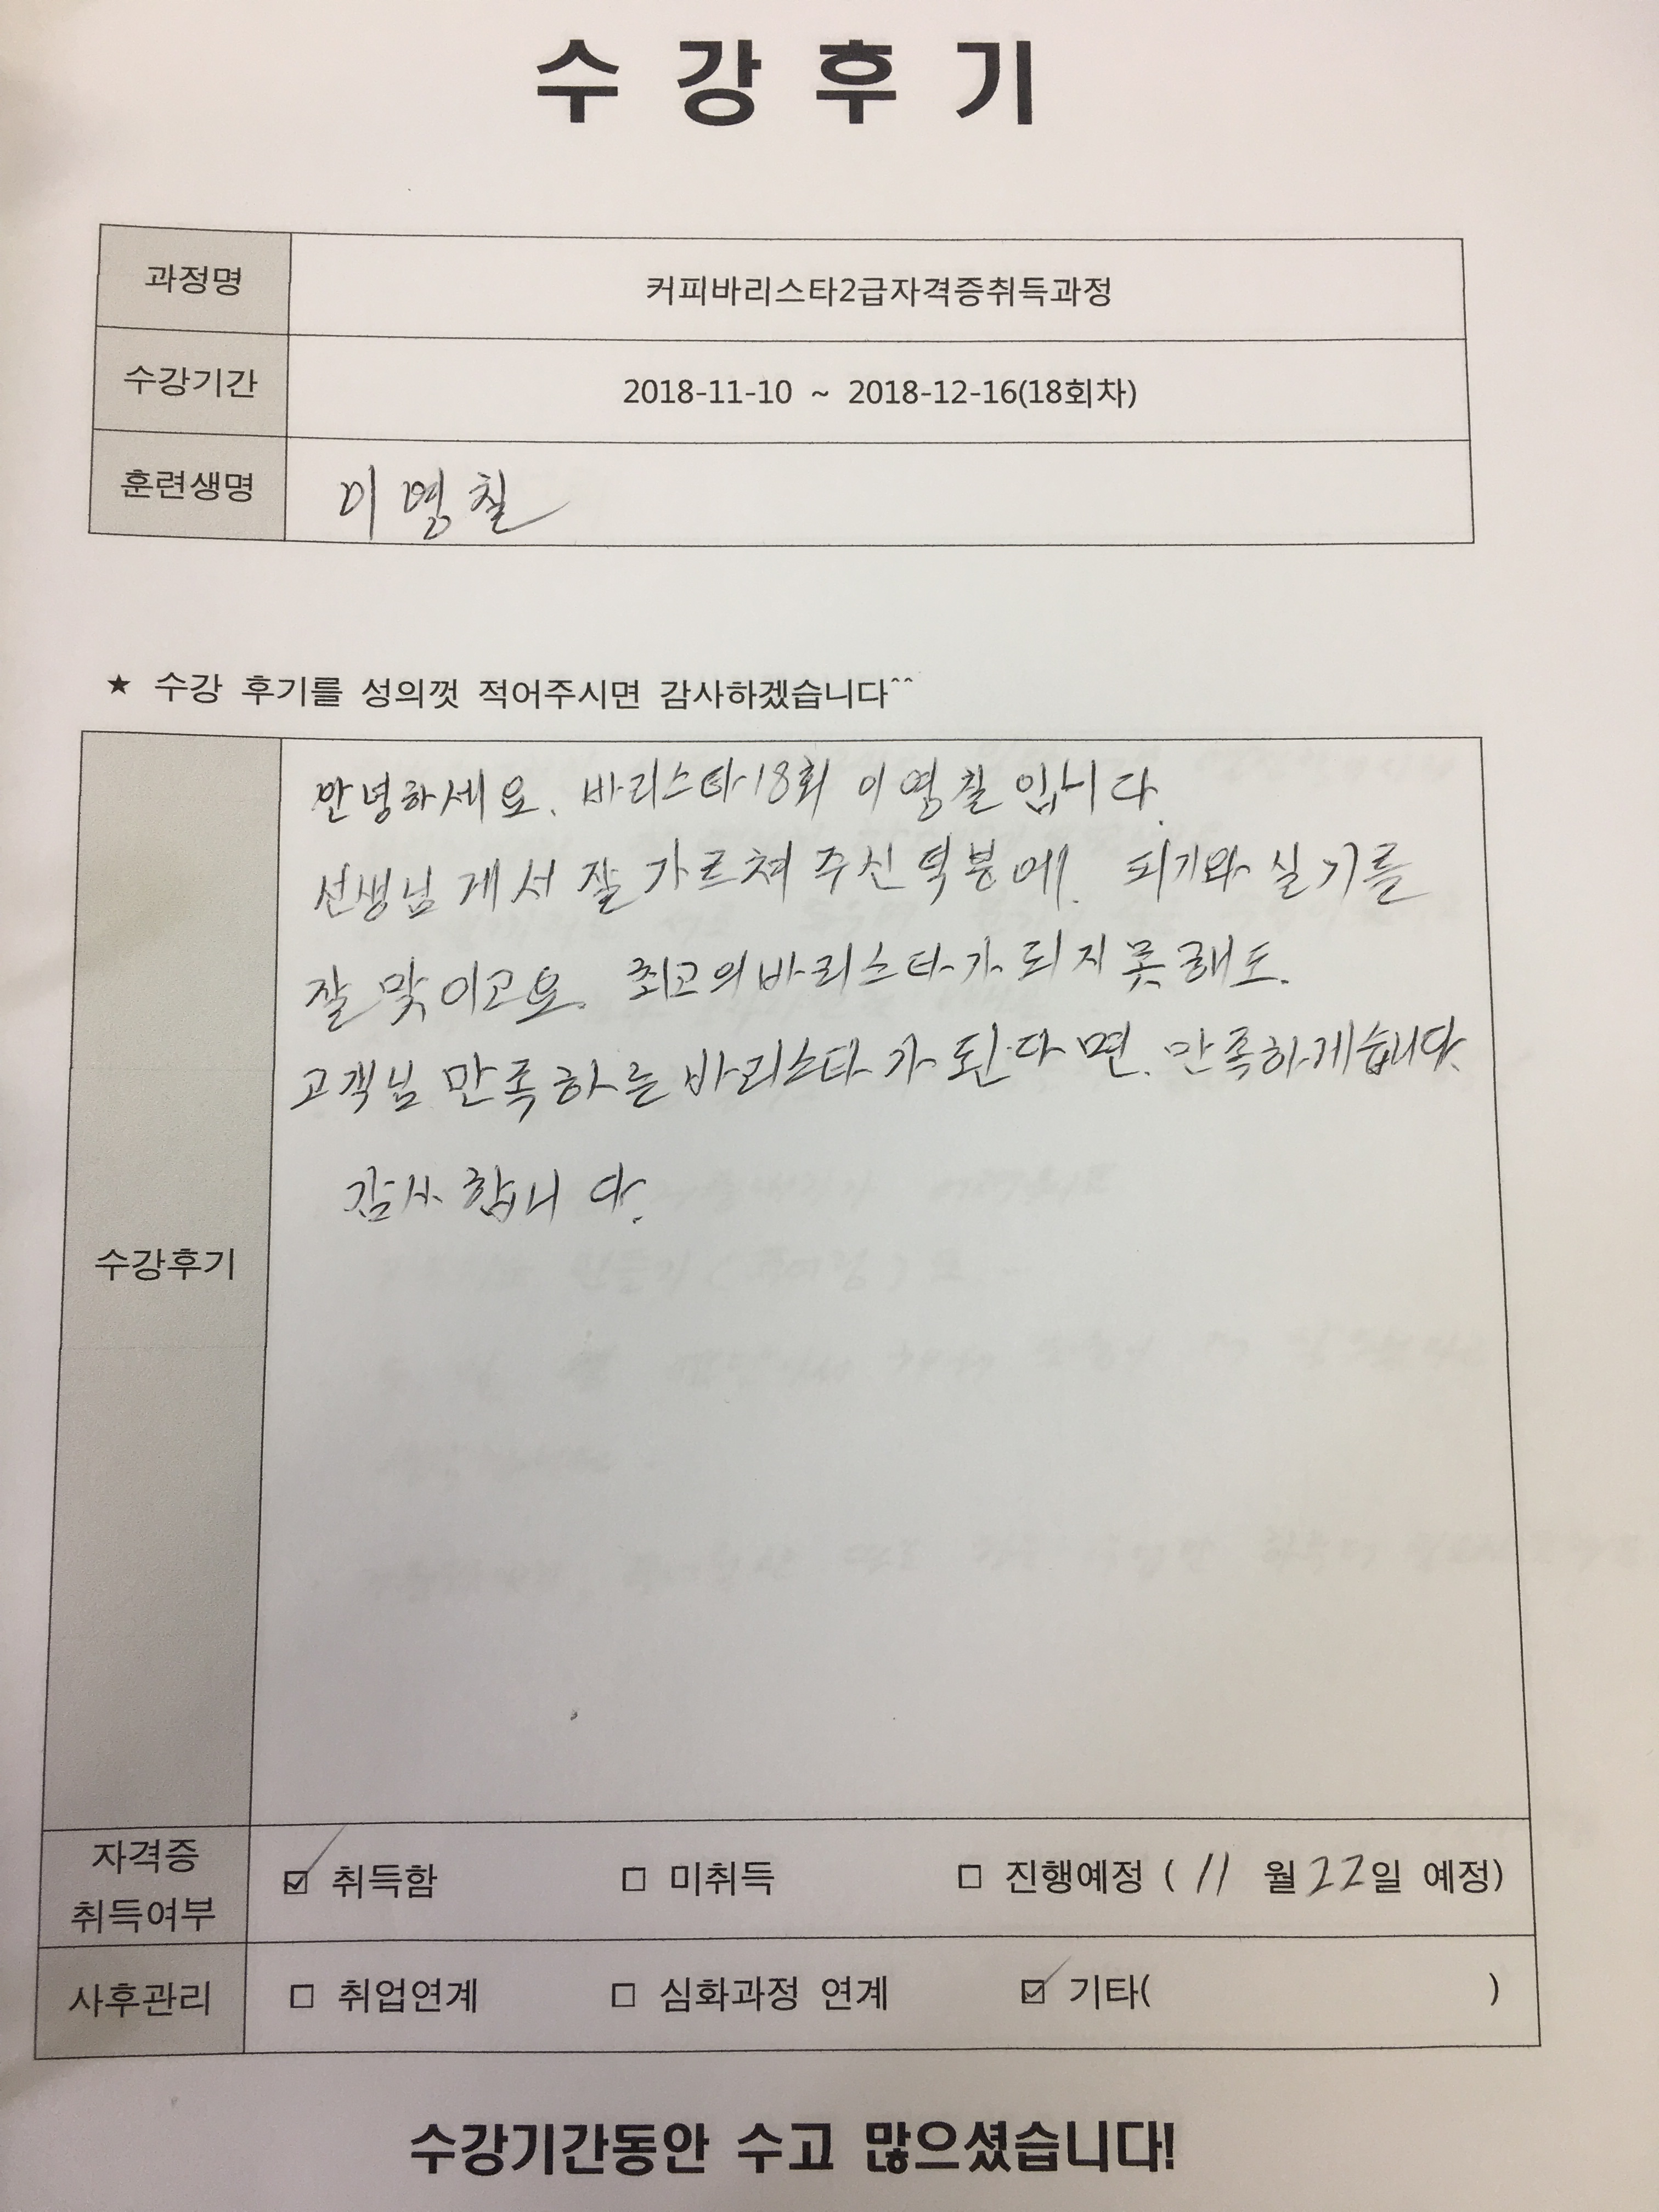 수 강 후 기
과정명 커피바리스타2급자격증취득과정
수강기간 2018-11-10 ~ 2018-12-16(18회차)
훈련생명 이영칠
★ 수강 후기를 성의껏 적어주시면 감사하겠습니다^^
안녕하세요. 바리스타18회 이영칠입니다.
선생님 게서 잘 가르쳐 주신 덕분에. 피기와 실기를
잘 맞이고요. 최고의 바리스타가 되지 못해도.
고객님 만족하는 바리스타가 된다면. 만족하게습니다.
감사합니다.
수강후기
자격증 취득여부 ☑ 취득함 □ 미취득 □ 진행예정 ( 11 월 22일 예정)
사후관리 □ 취업연계 □ 심화과정 연계 ☑ 기타( )
수강기간동안 수고 많으셨습니다!